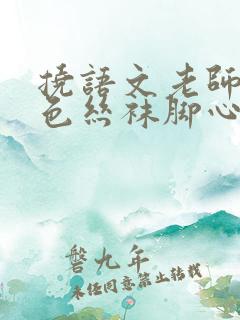 撓語文老師
色丝袜脚心
磬九年
未经同意禁止转载